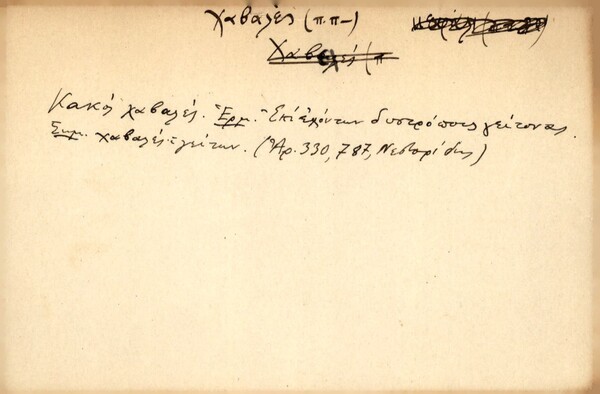 Χαβαλές (π.π-)
Χαβαλές (π
Κακός χαβαλές. Ἑρμ. Ἐπί ἐχόντων δυστρόπους γείτονας.
Σημ. χαβαλές = γείτων. (Ἀρ. 330, 787, Νεστορίδης)